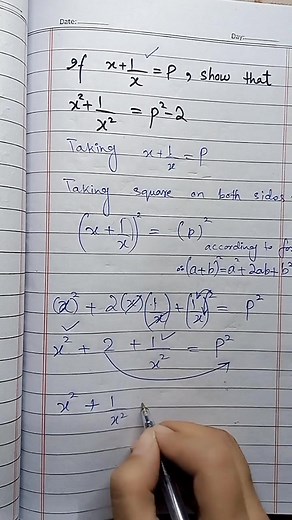 Date:
Day:
If x + 1/x = P, show that
x² + 1/x² = p² - 2
Taking x + 1/x = P
Taking square on both sides
(x + 1/x)² = (P)²
according to fo
(a+b)² = a² + 2ab + b²
(x)² + 2(x)(1/x) + (1/x)² = P²
x² + 2 + 1/x² = P²
x² + 1/x²